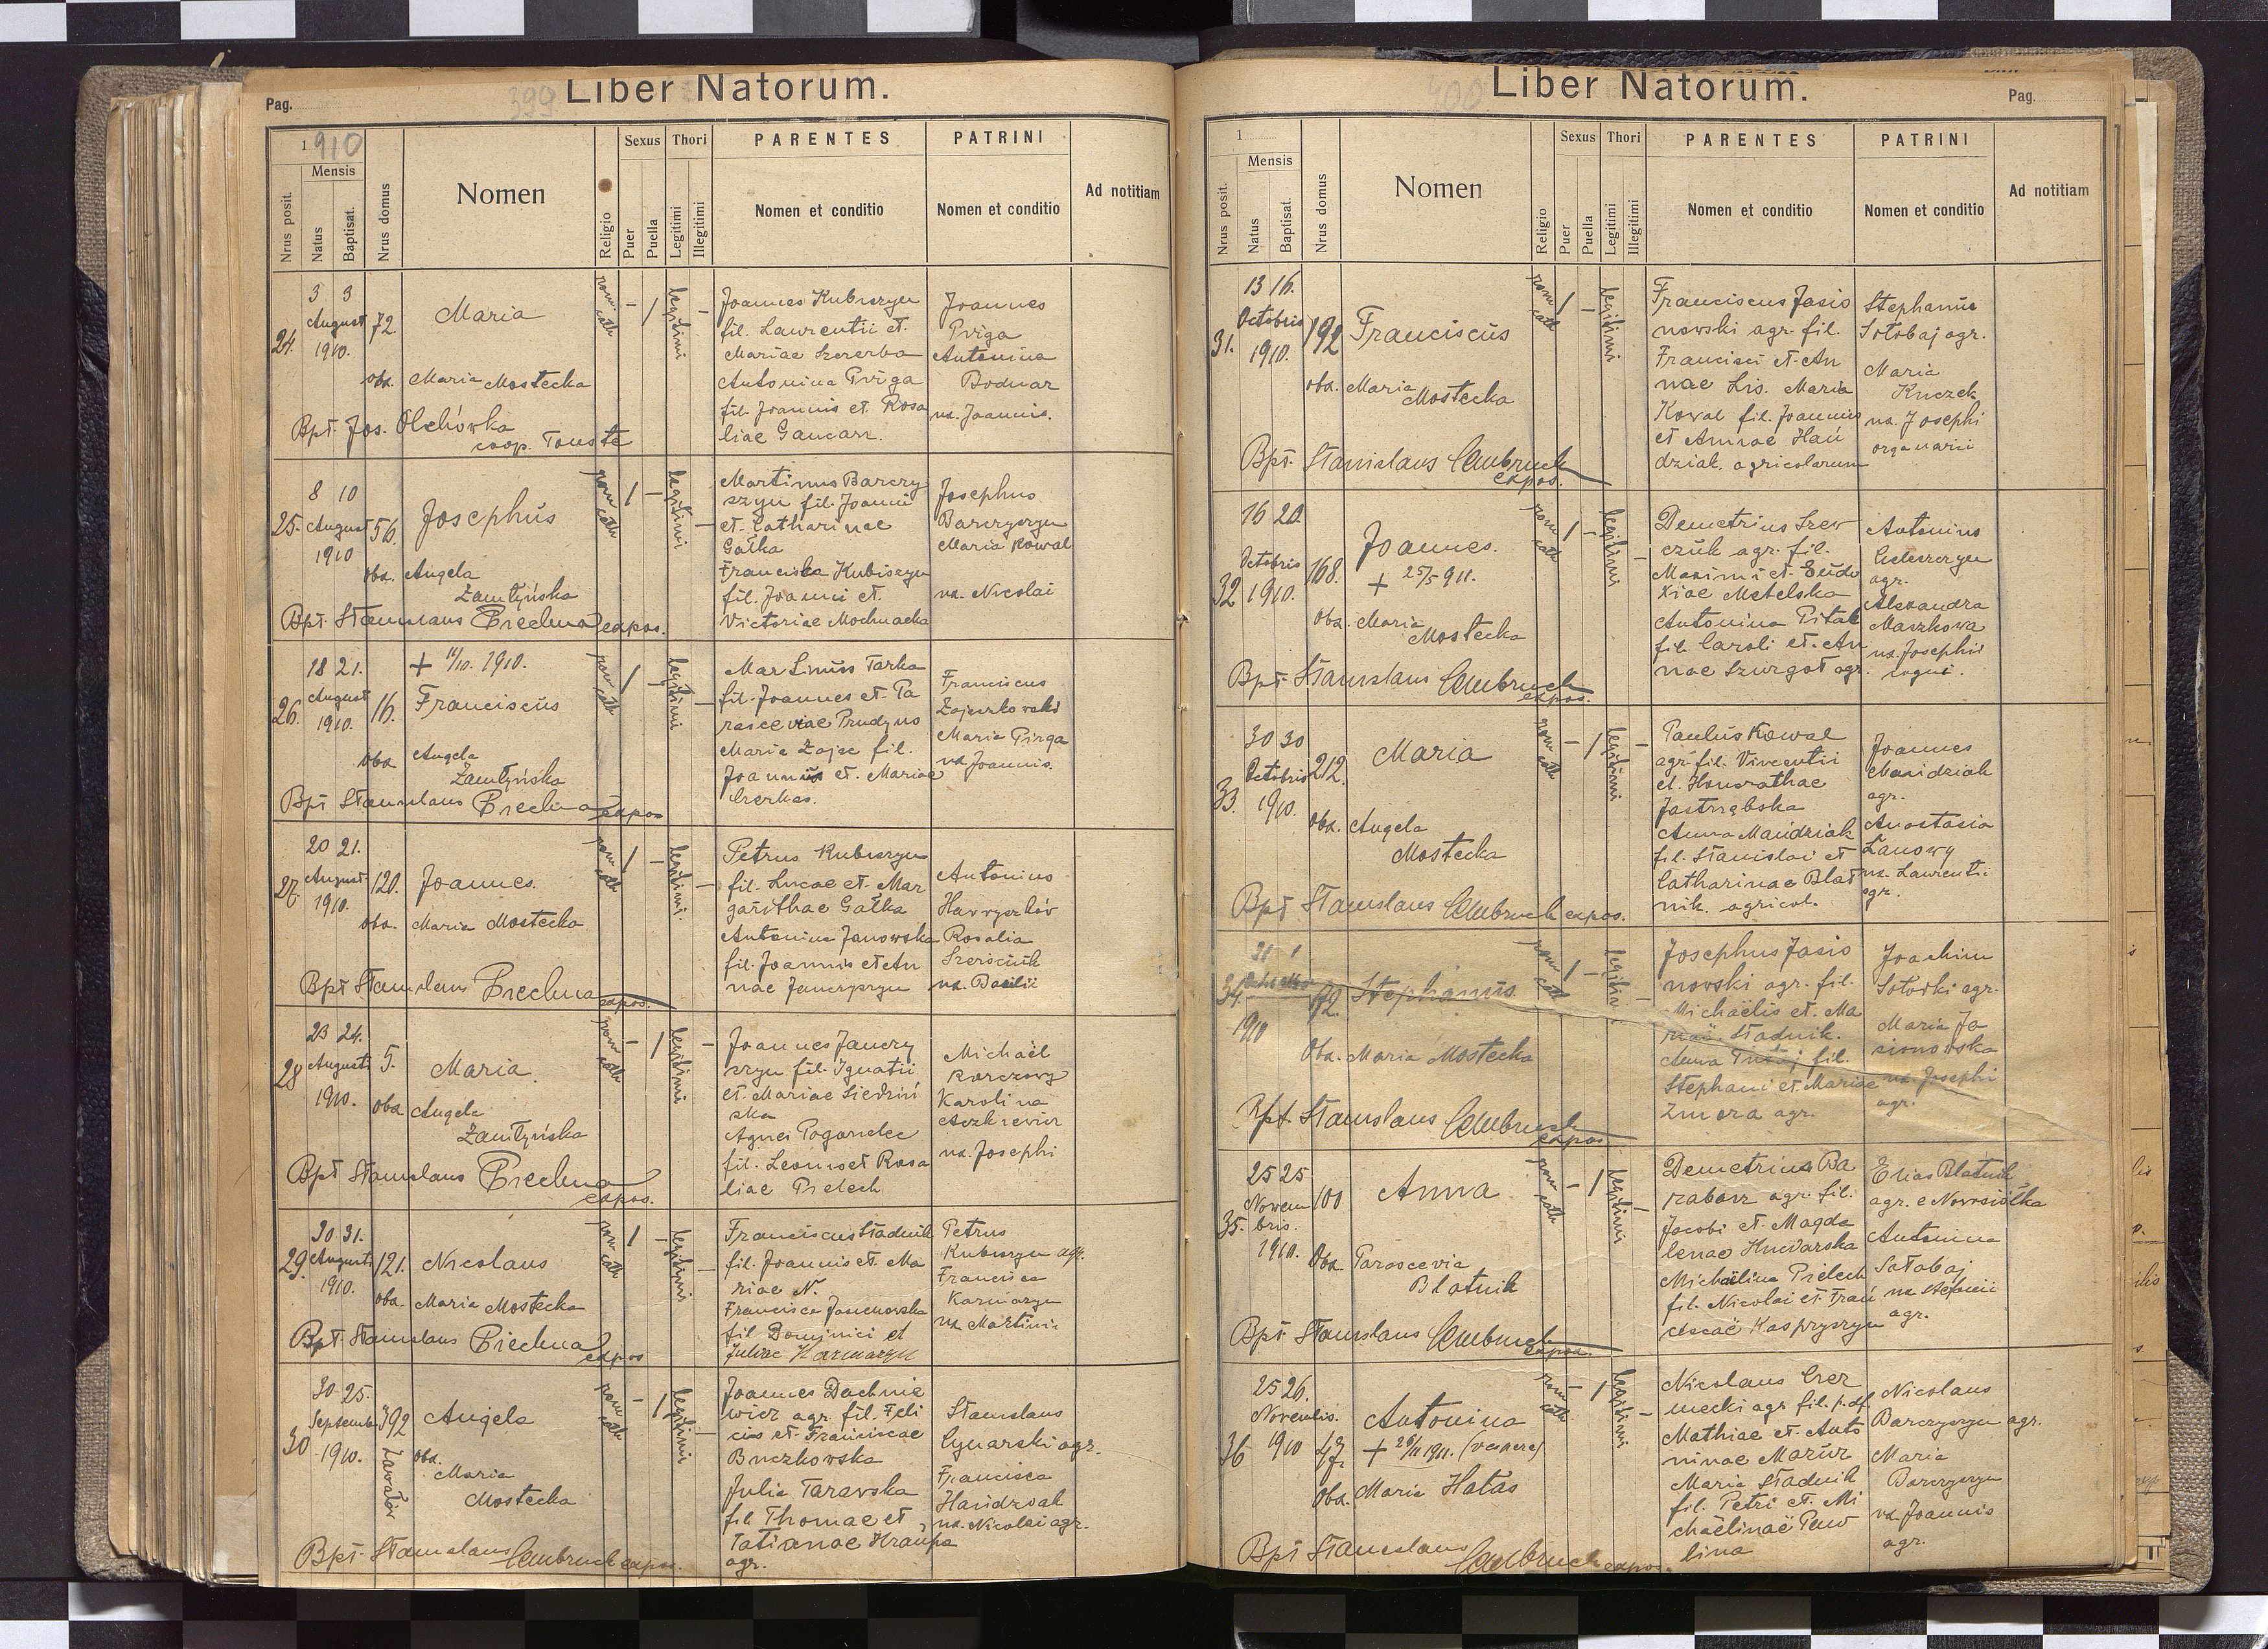 Liber Natorum.
Pag.
399
1910
Mensis
Nrus posit.
Natus
Baptisat.
Nrus domus
Nomen
Religio
Sexus
Puer
Puella
Thori
Legitimi
Illegitimi
PARENTES
Nomen et conditio
PATRINI
Nomen et conditio
Ad notitiam
24.
3 3
August
1910.
72.
Maria
oba. Maria Mostecka
Bpt. Jos. Olchówka
coop. Touste
rom. cath
- 1
legitimi
-
Joannes Kubiszyn
fil. Laurentii et
Mariae Szczerba
Antonina Pryga
fil. Joannis et Rosa
liae Gancarz.
Joannes
Pryga
Antonina
Bodnar
ux. Joannis.
25.
8 10
August
1910
56.
Josephus
oba. Angela
Zamłyńska
Bpt. Stanislaus Piechura expos.
rom cath
1 -
legitimi
-
Martinus Barczy
szyn fil. Joanni
et Catharinae
Gałka
Francisca Kubiszyn
fil. Joanni et
Victoriae Mochnacka
Josephus
Barczyszyn
Maria Kowal
ux. Nicolai
26.
18 21.
August
1910.
16.
+ 11/10. 1910.
Franciscus
oba Angela
Zamłyńska
Bpt Stanislaus expos
rom cath
1 -
legitimi
-
Martinus Tarka
fil. Joannes et Pa
rasceviae
Maria Zając fil.
Joannis et Mariae
Czerkas.
Franciscus
Zajączkowski
Maria Pirga
ux Joannis.
27.
20 21.
August
1910.
120.
Joannes.
oba. Maria Mostecka
Bpt Stanislaus expos.
rom cath
1 -
legitimi.
-
Petrus Kubiszyn
fil. Lucae et Mar
garithae Gałka
Antonina Janowska
fil. Joannis et An
nae Janczyszyn
Antonius
Hawryszków
Rosalia
ux. Basilii
28
23 24.
Augusti
1910.
5.
Maria
oba Angela
Zamłyńska
Bpt Stanislaus expos.
rom cath
- 1
legitimi
-
Joannes Janczy
szyn fil. Ignatii
et Mariae Siedziń
ska
Agnes
fil. Leonis et Rosa
liae Pielech
Michaël
Karolina
ux. Josephi
29.
30 31.
Augusti
1910.
121.
Nicolaus
oba. Maria Mostecka
Bpt. Stanislaus expos
rom cath
1 -
legitimi
-
Franciscus Stadnik
fil. Joannis et Ma
riae N.
Francisca
fil Dominici et
Juliae Karmazyn
Petrus
Kubiszyn agr.
Francisca
Karmazyn
ux Martini
30
30 25.
Septemb
1910.
392
Angela
oba.
Maria
Mostecka
Bpt. Stanislaus expos.
rom cath
- 1
legitimi
-
Joannes Dachnie
wicz agr. fil. Feli
cis et Franciscae
Buczkowska
Julia Tarawska
fil Thomae et
Tatianae
agr.
Stanislaus
agr.
Francisca
ux. Nicolai agr.
Liber Natorum.
Pag.
400
1
Mensis
Nrus posit.
Natus
Baptisat.
Nrus domus
Nomen
Religio
Sexus
Puer
Puella
Thori
Legitimi
Illegitimi
PARENTES
Nomen et conditio
PATRINI
Nomen et conditio
Ad notitiam
31.
13 16.
Octobris
1910.
192
Franciscus
oba. Maria
Mostecka
Bpt. Stanislaus
expos.
rom cath
1 -
legitimi
Franciscus Jasio
nowski agr. fil.
Francisci et An
nae Lis. Maria
Kowal fil. Joannis
et Annae Hań
dziak agricolarum
Stephanus
Sołobaj agr.
Maria
Kuczek
ux. Josephi
organarii
32
16 20
Octobris
1910.
168.
Joannes.
+ 25/5 911.
oba. Maria
Mostecka
Bpt Stanislaus
expos.
rom cath
1 -
legitimi
-
Demetrius Szew
czuk agr. fil.
Maximi et Eudo
xiae Metelska
Antonina
fil. Caroli et An
nae Szurgot agr.
Antonius
agr.
Alexandra
Maszkowa
ux. Josephi
33.
30 30
Octobris
1910.
212.
Maria
oba. Angela
Mostecka
Bpt Stanislaus expos.
rom cath
- 1
legitimi
-
Paulus Kowal
agr. fil. Vincentii
et Honorathae
Jastrzębska
Anna Mandziak
fil. Stanislai et
Catharinae Błat
nik. agricol.
Joannes
Mandziak
agr.
Anastasia
Łanowy
ux. Laurentii
agr.
34.
31 1
1910
72.
Stephanus.
Oba. Maria Mostecka
Bpt. Stanislaus
expos
rom cath
1 -
legitimi
-
Josephus Jasio
nowski agr. fil.
Michaëlis et Ma
riae Stadnik.
Anna fil.
Stephani et Mariae
Zmora agr.
Joachim
agr.
Maria Ja
sionowska
ux. Josephi
agr.
35.
25 25
Novem
bris.
1910.
100
Anna
Oba. Parascevia
Blatnik
Bpt Stanislaus
expos.
rom cath
- 1
legitimi
-
Demetrius Ba
rabasz agr. fil.
Jacobi et Magda
lenae
Michaëlina Pielech
fil. Nicolai et Fran
ciscae Kaspryszyn
Elias Blatnik
agr. e Nowosiółka
Antonina
Sołobaj
ux Stefanii
agr.
36
25 26.
Novembris.
1910
47.
Antonina
+ 26/11 1911. (vespere)
Oba. Maria Hałas
Bpt Stanislaus
expos.
rom cath
- 1
legitimi
-
Nicolaus Czer
niecki agr. fil. p. df.
Mathiae et Anto
ninae Mazur
Maria Stadnik
fil. Petri et Mi
chaëlinae Paw
lina
Nicolaus
Barczyszyn agr.
Maria
Barczyszyn
ux Joannis
agr.